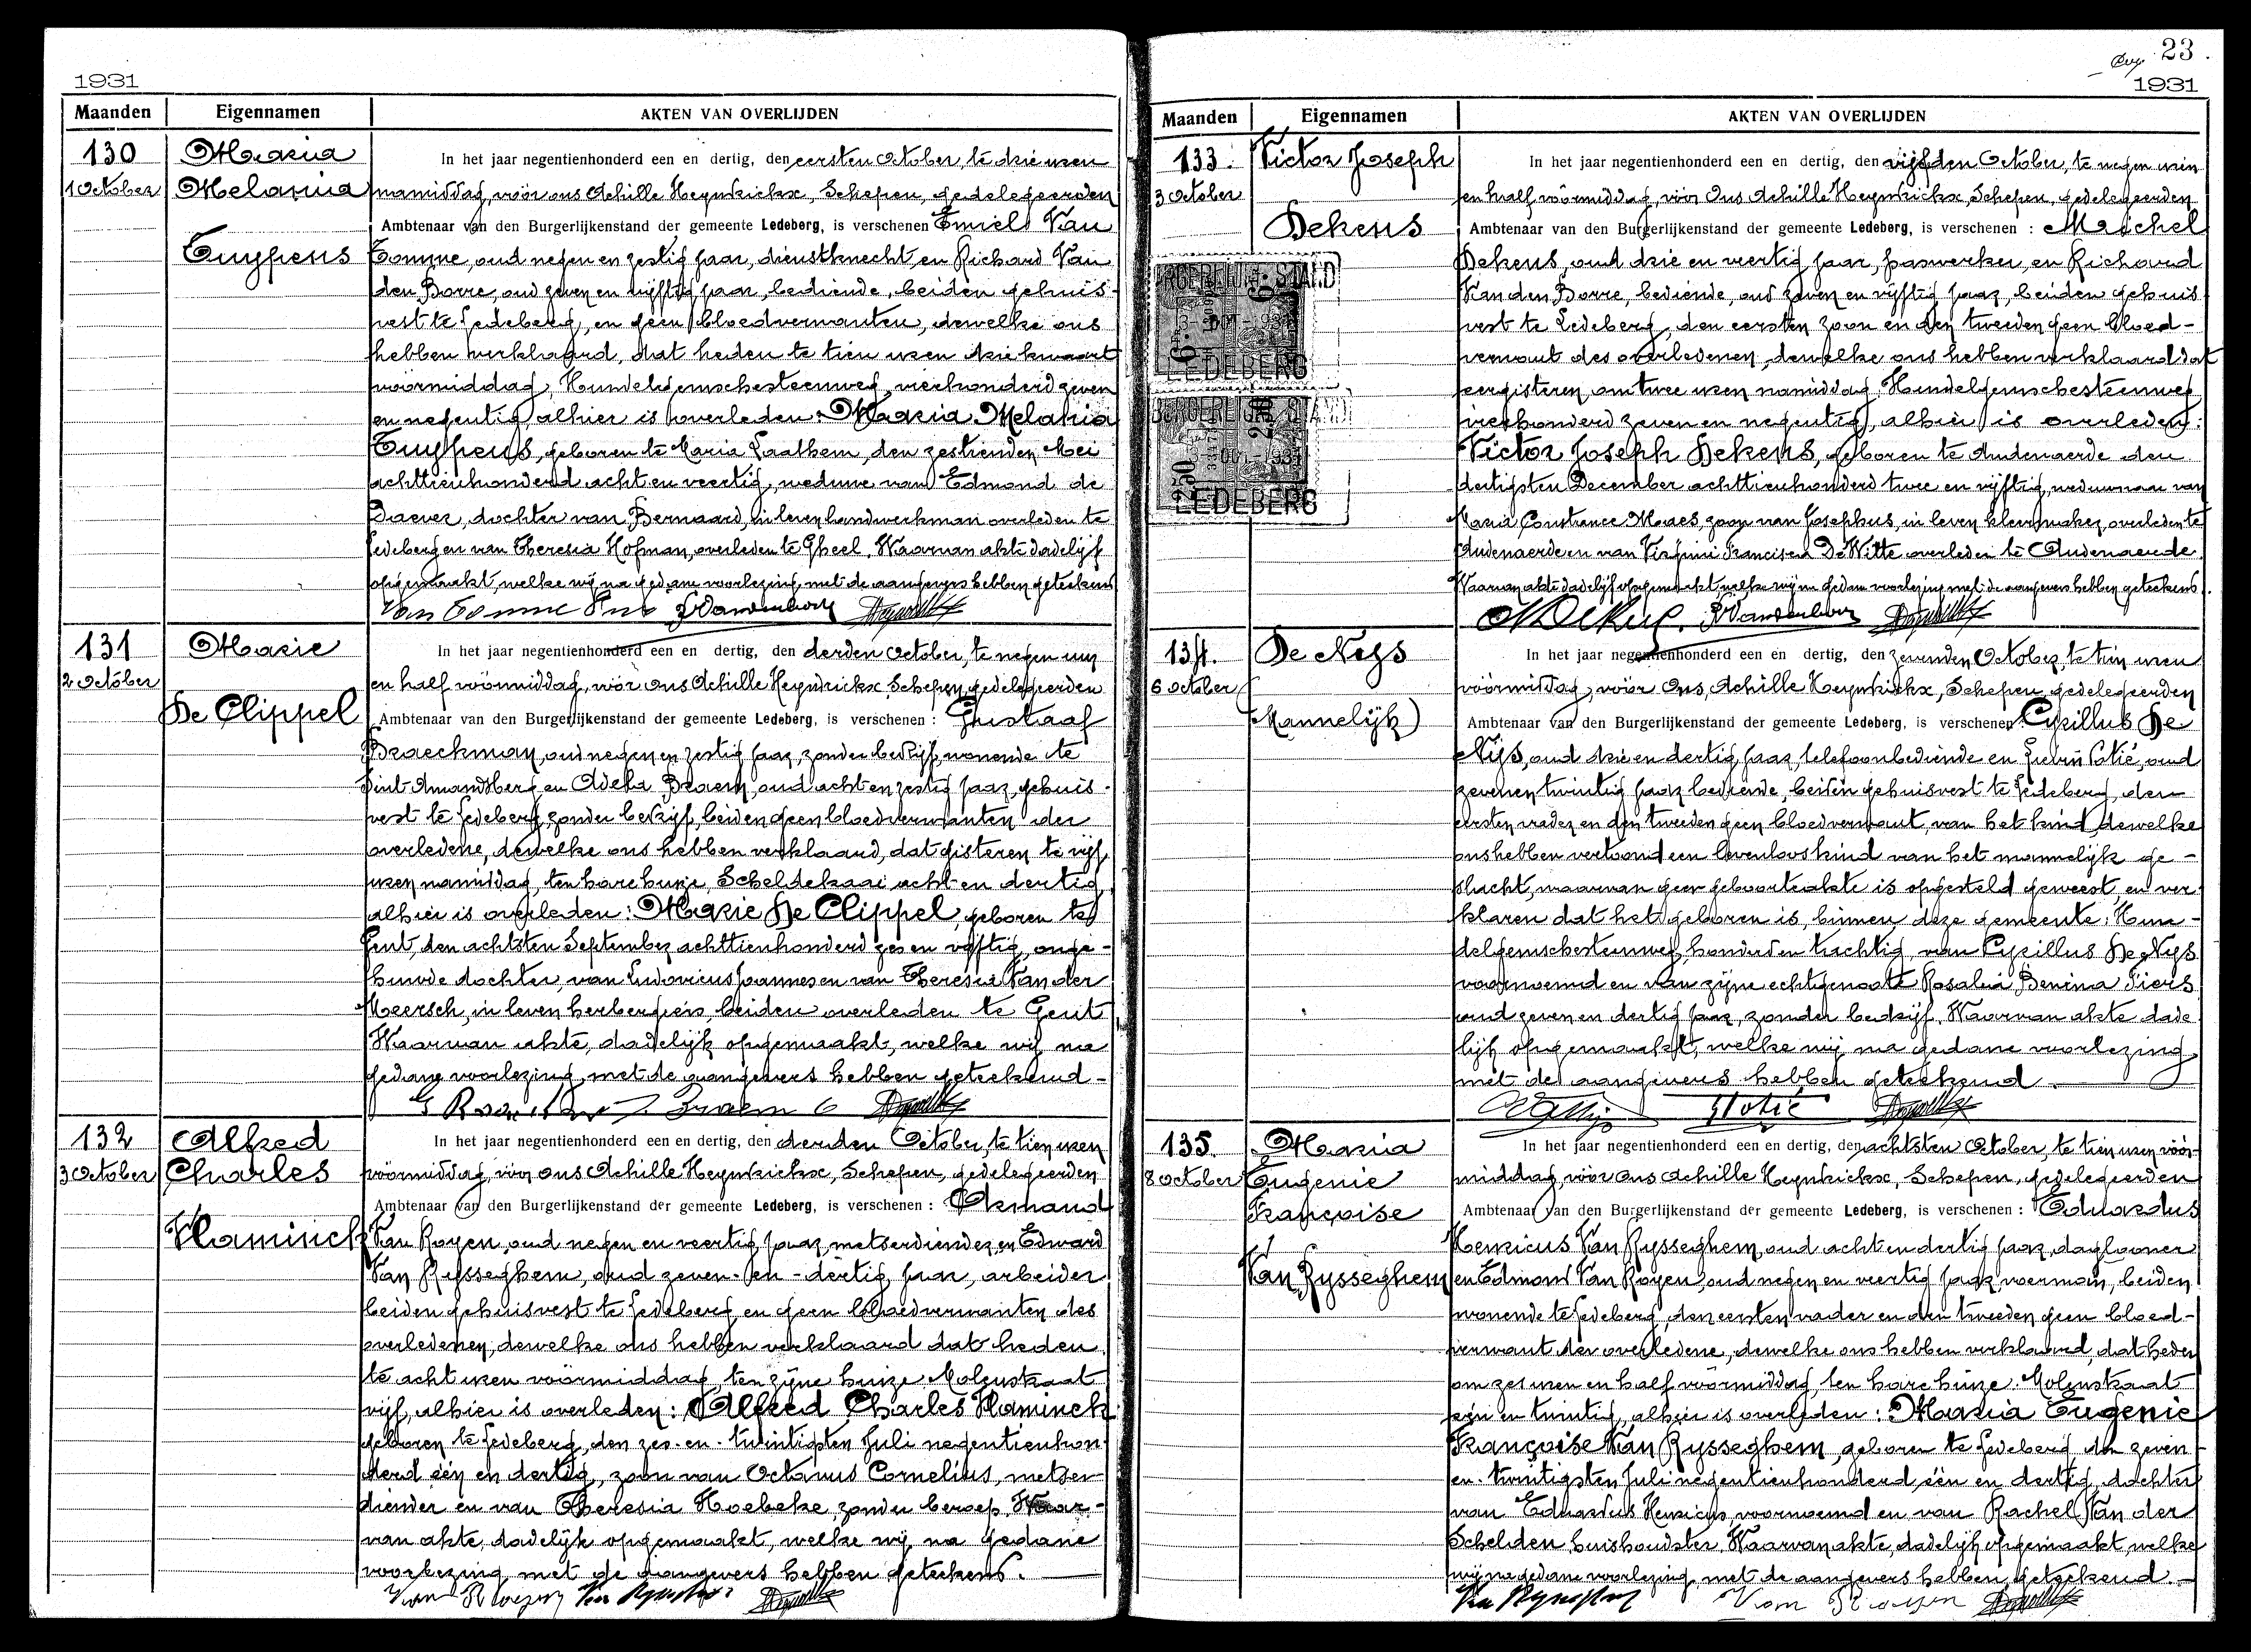 1931
Maanden Eigennamen AKTEN VAN OVERLIJDEN
130
1 October
Maria
Melania
Tuypens
In het jaar negentienhonderd een en dertig, den eersten October, te drie uren
namiddag, vóór ons Achille Heynderickx, Schepen, gedelegeerden
Ambtenaar van den Burgerlijkenstand der gemeente Ledeberg, is verschenen Emiel Van
Tomme, oud negen en zestig jaar, dienstknecht en Richard Van
den Borre, oud zeven en vijftig jaar, bediende, beiden gehuis-
vest te Ledeberg, en geen bloedverwanten, dewelke ons
hebben verklaard, dat heden te tien uren drie kwaart
voormiddag, Hundelgemschesteenweg, vierhonderd zeven
en negentig, alhier is overleden: Maria Melania
Tuypens, geboren te Maria Laathem, den zestienden Mei
achttienhonderd acht en veertig, weduwe van Edmond de
Daever, dochter van Bernaard, in leven handwerkman overleden te
Ledeberg en van Theresia Hofman, overleden te Gheel, Waarvan akte dadelijk
opgemaakt, welke wij na gedane voorlezing, met de aangevers hebben geteekend
131
2 October
Marie
De Clippel
In het jaar negentienhonderd een en dertig, den derden October, te negen uur
en half vóórmiddag, vóór ons Achille Heynderickx, Schepen, gedelegeerden
Ambtenaar van den Burgerlijkenstand der gemeente Ledeberg, is verschenen : Gustaaf
Braeckman, oud negen en zestig jaar, zonder bedrijf, wonende te
Sint Amandsberg en Adela Braem, oud acht en zestig jaar, gehuis-
vest te Ledeberg, zonder bedrijf, beiden geen bloedverwanten der
overledene, dewelke ons hebben verklaard, dat gisteren te vijf
uren namiddag, ten hare huize, Scheldekaai acht en dertig
alhier is overleden: Marie De Clippel, geboren te
Gent, den achtsten September achttienhonderd zes en vijftig, onge-
huwde dochter, van Ludovicus Joannes en van Theresia Van der
Meersch, in leven herbergiers, beiden overleden te Gent
Waarvan akte, dadelijk opgemaakt, welke wij na
gedane voorlezing, met de aangevers hebben geteekend -
132
3 October
Alfred
Charles
Vlaminck
In het jaar negentienhonderd een en dertig, den derden October, te tien uren
vóórmiddag, vóór ons Achille Heynderickx, Schepen, gedelegeerden
Ambtenaar van den Burgerlijkenstand der gemeente Ledeberg, is verschenen : Armand
Van Royen, oud negen en veertig jaar, metserdiender, en Edward
Van Rysseghem, oud zeven- en -dertig jaar, arbeider
beiden gehuisvest te Ledeberg en geen bloedverwanten des
overledenen, dewelke ons hebben verklaard dat heden
te acht uren voormiddag, ten zijne huize Molenstraat
vijf, alhier is overleden: Alfred Charles Vlaminck
geboren te Ledeberg, den zes-en-twintigsten Juli negentienhon-
derd een en dertig, zoon van Octavus Cornelius, metser-
diender en van Theresia Hoebeke, zonder beroep. Waar-
van akte, dadelijk opgemaakt, welke wij na gedane
voorlezing met de aangevers hebben geteekend.
23
1931
Maanden Eigennamen AKTEN VAN OVERLIJDEN
133.
3 October
Victor Joseph
Dekens
LEDEBERG
LEDEBERG
In het jaar negentienhonderd een en dertig, den vijfden October, te negen uren
en half vóórmiddag, vóór Ons Achille Heynderickx, Schepen, gedelegeerden
Ambtenaar van den Burgerlijkenstand der gemeente Ledeberg, is verschenen : Michel
Dekens, oud drie en veertig jaar, paswerker, en Richard
Van den Borre, bediende, oud zeven en vijftig jaar, beiden gehuis
vest te Ledeberg, den eersten zoon en den tweeden geen bloed-
verwant des overledenen, dewelke ons hebben verklaard dat
eergisteren, om twee uren namiddag Hundelgemschesteenweg
vierhonderd zeven en negentig, alhier is overleden:
Victor Joseph Dekens, geboren te Audenaerde den
dertigsten December achttienhonderd twee en vijftig, weduwnaar van
Maria Constance Maes, zoon van Josephus, in leven kleermaker, overleden te
Audenaerde en van Virginie Francisca De Witte overleden te Audenaerde
Waarvan akte dadelijk opgemaakt, welke wij na gedane voorlezing met de aangevers hebben geteekend.
134.
6 October
De Nys
(Mannelijk)
In het jaar negentienhonderd een en dertig, den zevenden October, te tien uren
vóórmiddag, vóór Ons, Achille Heynderickx, Schepen, gedelegeerden
Ambtenaar van den Burgerlijkenstand der gemeente Ledeberg, is verschenen : Cyrillus De
Nijs, oud drie en dertig jaar, telefoonbediende en Potié, oud
zeven en twintig jaar bediende, beiden gehuisvest te Ledeberg, den
eersten vader en den tweeden geen bloedverwant, van het kind, dewelke
ons hebben vertoond een levenloos kind van het mannelijk ge-
slacht, waarvan geen geboorteakte is opgesteld geweest, en ver
klaren dat het geboren is, binnen deze gemeente, Hun-
delgemschesteenweg, honderd en tachtig, van Cyrillus De Nys
voornoemd en van zijne echtgenoote Rosalia Benina Piers
oud zeven en dertig jaar, zonder bedrijf. Waarvan akte dade
lijk opgemaakt, welke wij na gedane voorlezing
met de aangevers hebben geteekend.
135.
8 October
Maria
Eugenie
Françoise
Van Rysseghem
In het jaar negentienhonderd een en dertig, den achtsten October, te tien uren vóór-
middag, vóór ons Achille Heynderickx, Schepen, gedelegeerden
Ambtenaar van den Burgerlijkenstand der gemeente Ledeberg, is verschenen : Eduardus
Henricus Van Rysseghem, oud acht en dertig jaar, daglooner
en Edmond Van Royen, oud negen en veertig jaar, voerman, beiden
wonende te Ledeberg, den eersten vader en den tweeden geen bloed-
verwant der overledene, dewelke ons hebben verklaard, dat heden
om zes uren en half vóórmiddag, ten hare huize Molenstraat
een en twintig, alhier is overleden: Maria Eugenie
Françoise Van Rysseghem, geboren te Ledeberg den zeven
en-twintigsten Juli negentienhonderd één en dertig, dochter
van Eduardus Henricus, voornoemd en van Rachel Van der
Schelden huishoudster. Waarvan akte, dadelijk opgemaakt, welke
wij na gedane voorlezing met de aangevers hebben geteekend.